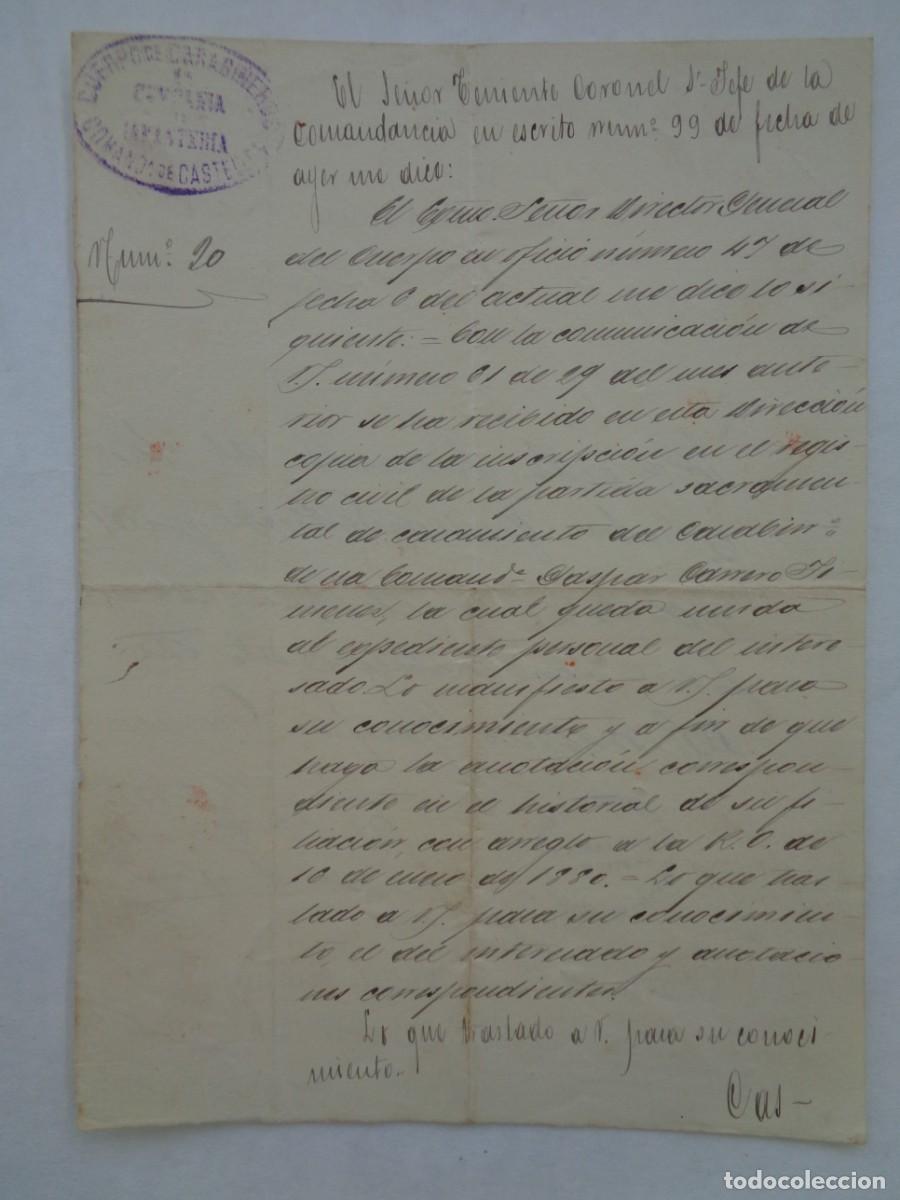 CUERPO DE CARABINEROS
COMPAÑIA
DE
INFANTERIA
COMAND.ª DE CASTELLON
Num.º 20
El Señor Teniente Coronel 1.er Jefe de la
Comandancia en escrito num.º 99 de fecha de
ayer me dice:
El Excmo. Señor Director General
del Cuerpo en oficio número 47 de
fecha 6 del actual me dice lo si-
guiente: = Con la comunicación de
V.S. número 61 de 29 del mes ante-
rior se ha recibido en esta Dirección
copia de la inscripción en el regis-
tro civil de la partida sacramen-
tal de casamiento del Carabin.º
de esa Comand.ª Gaspar Carrero Ji-
menes, la cual queda unida
al expediente personal del intere-
sado. Lo manifiesto a V.S. para
su conocimiento y a fin de que
haga la anotación correspon-
diente en el historial de su fi-
liación, con arreglo a la R.O. de
10 de enero de 1880. = Lo que tras-
lado a V. para su conocimien-
to, el del interesado y anotacio-
nes correspondientes.
Lo que traslado a V. para su conoci-
miento.-
Cas-
todocoleccion